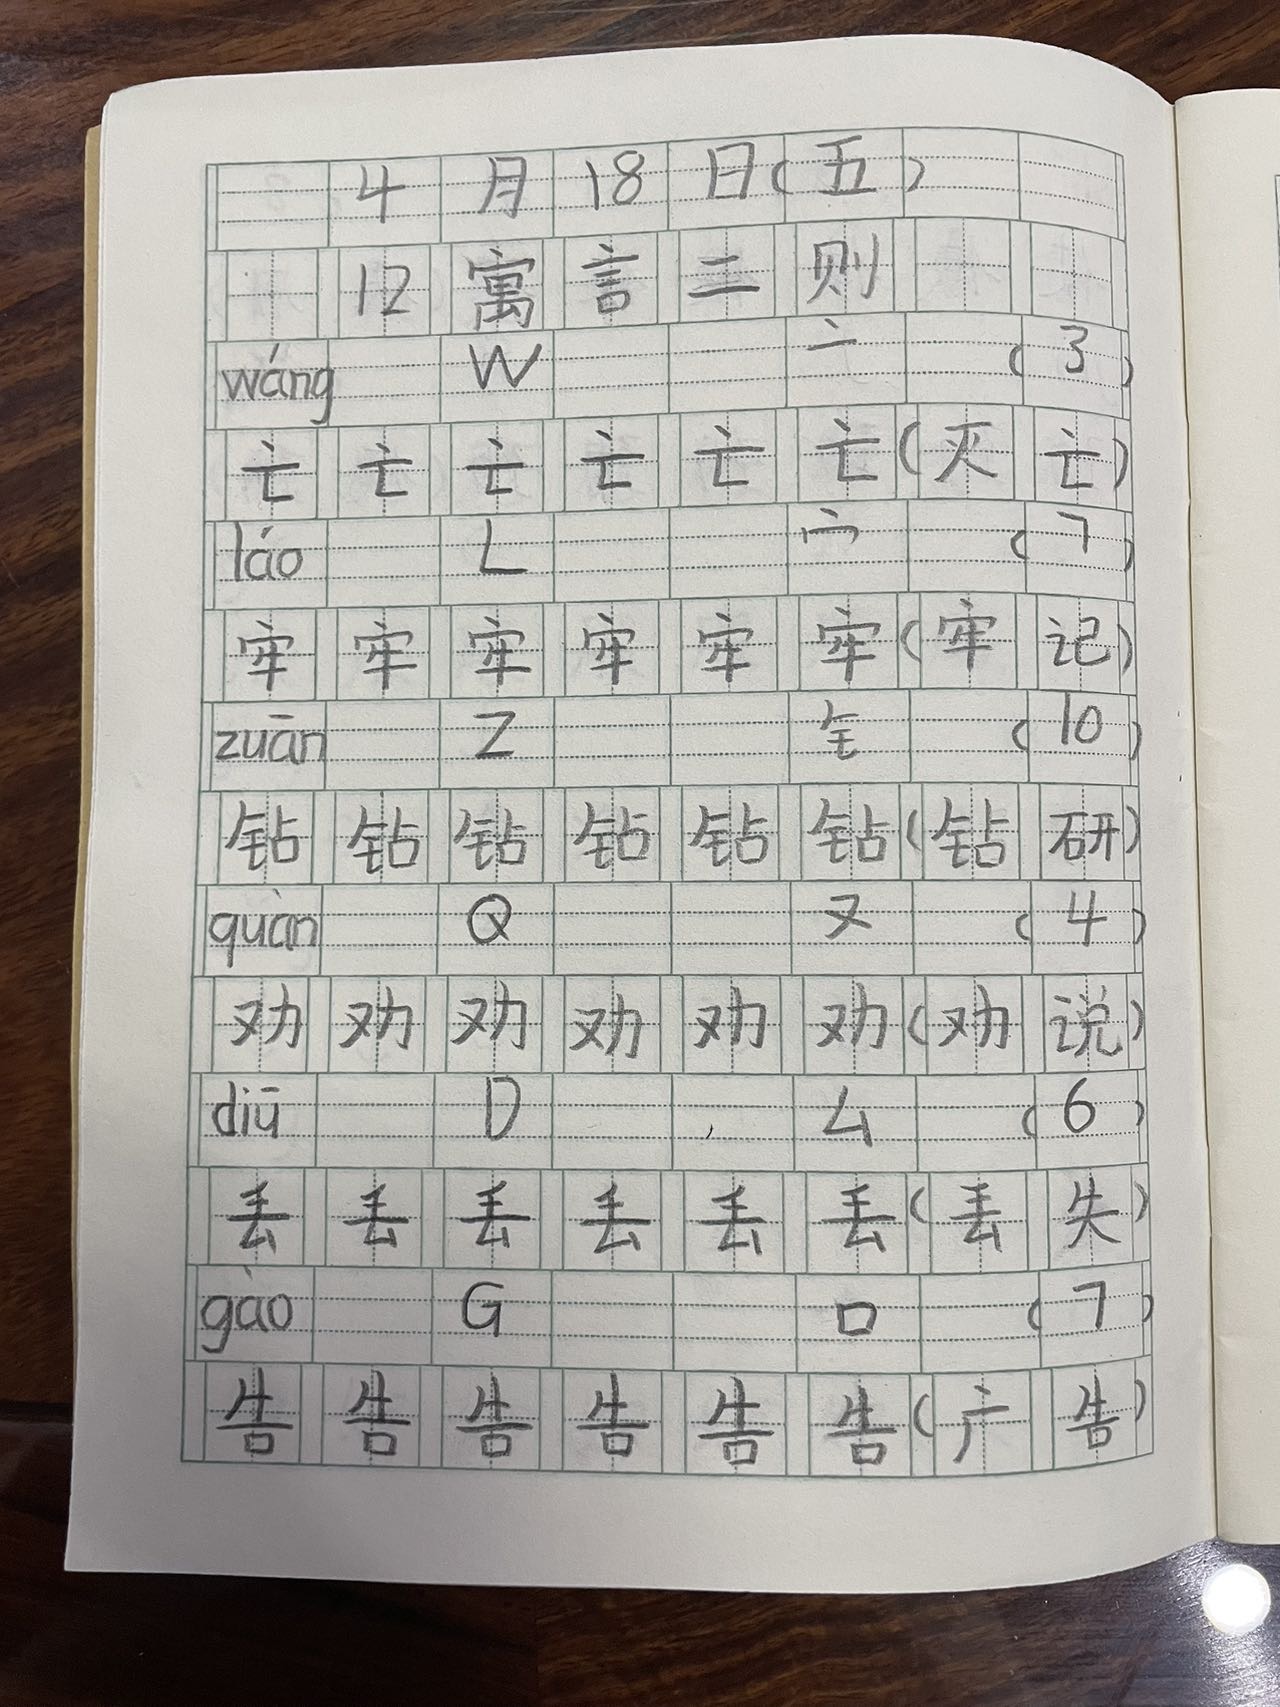 4月18日(五)
12寓言二则
wáng W 亠 (3)
亡亡亡亡亡亡(灭亡)
láo L 宀 (7)
牢牢牢牢牢牢(牢记)
zuān Z 钅 (10)
钻钻钻钻钻钻(钻研)
quàn Q 又 (4)
劝劝劝劝劝劝(劝说)
diū D 厶 (6)
丢丢丢丢丢丢(丢失)
gào G 口 (7)
告告告告告告(广告)